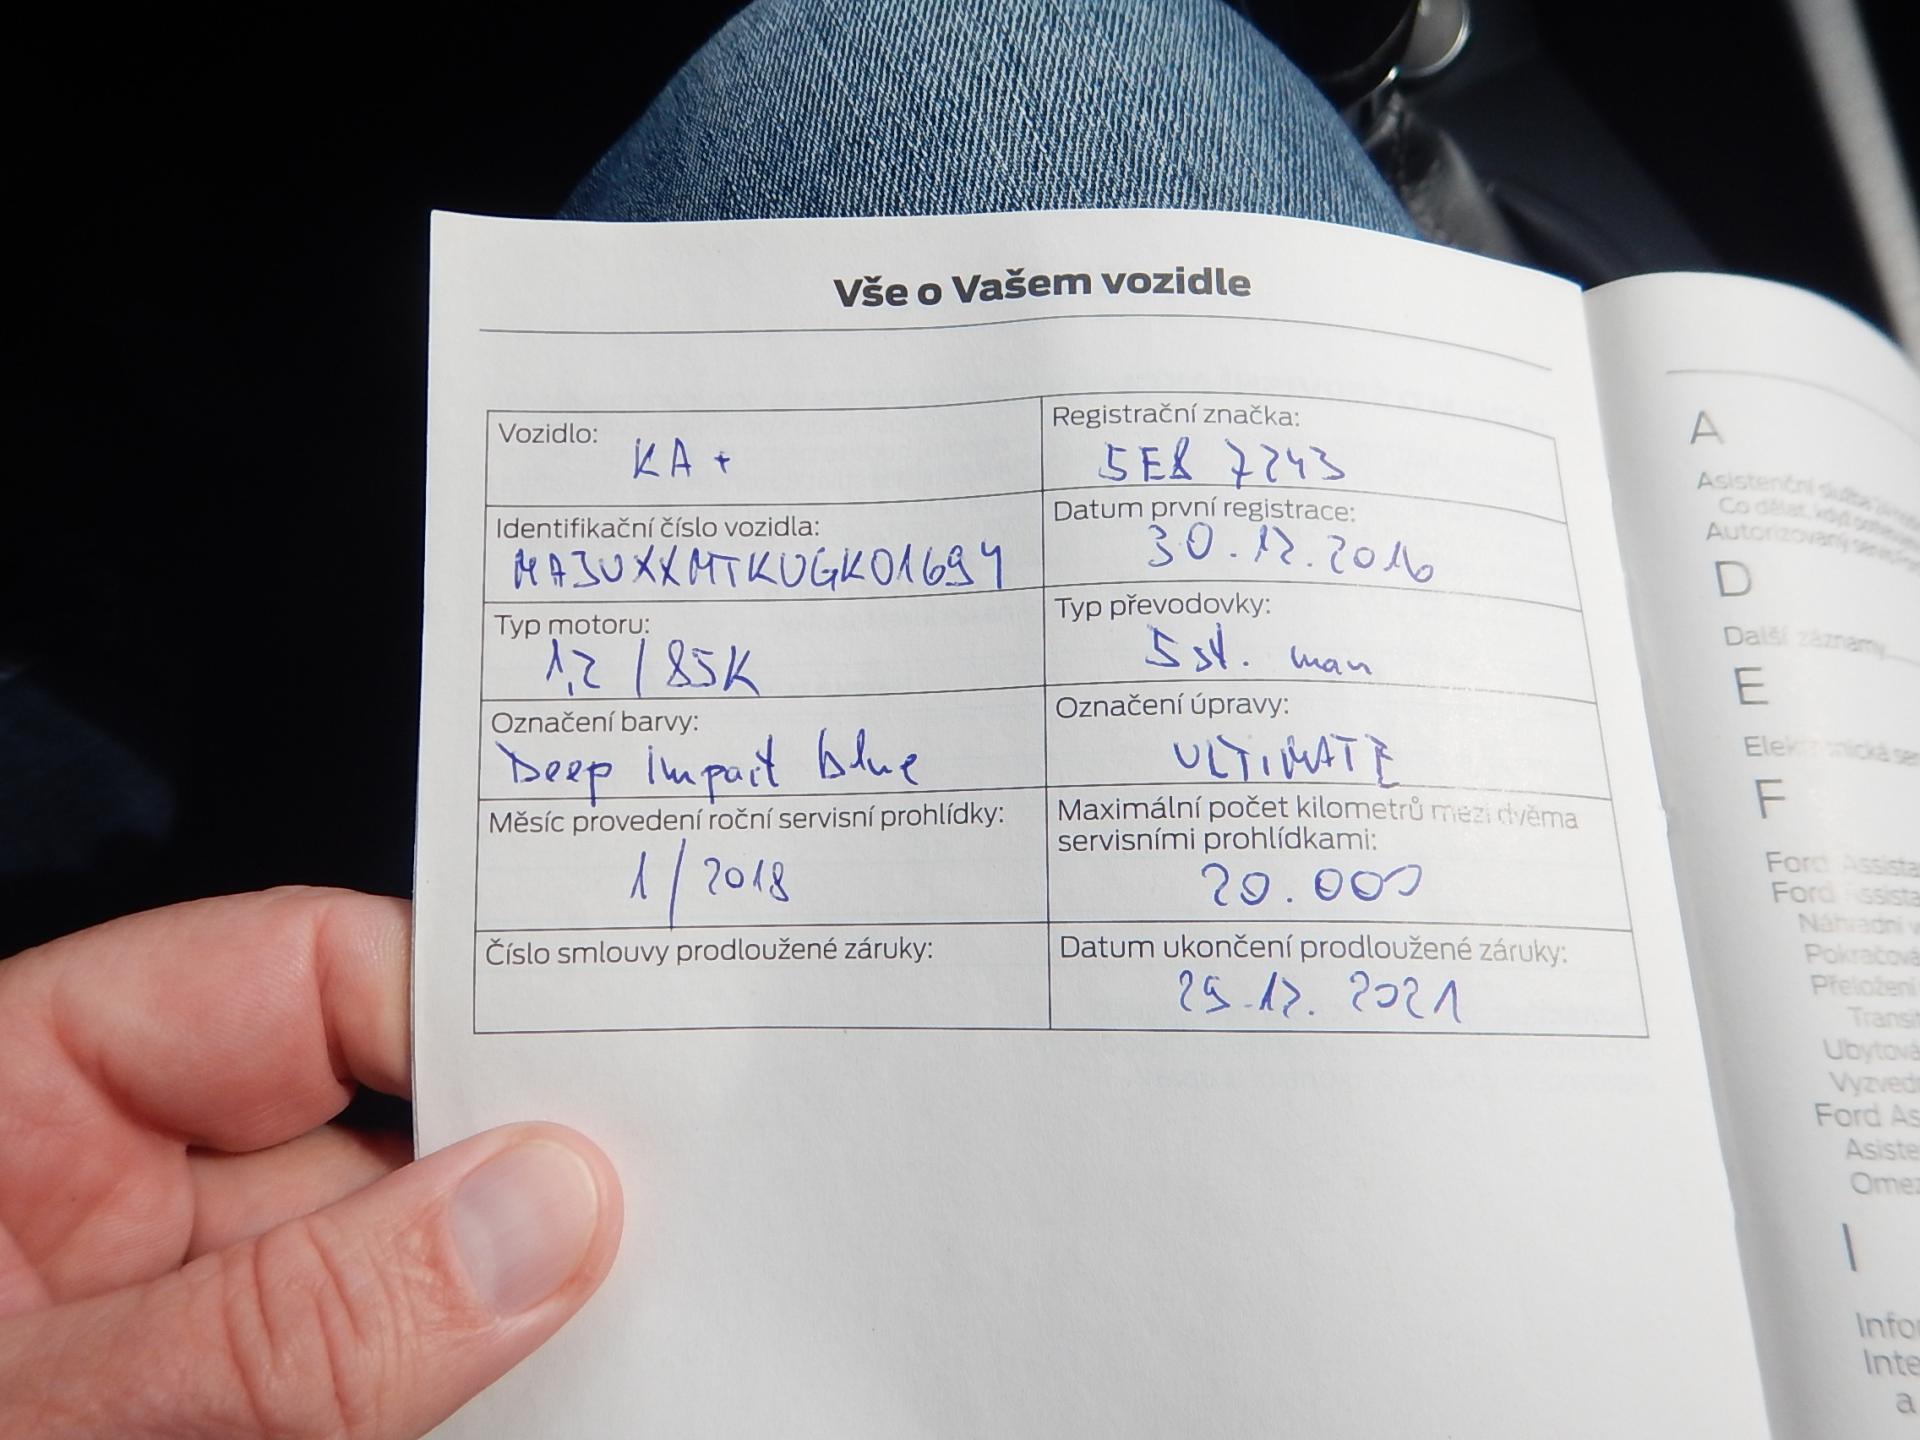 Vše o Vašem vozidle
Vozidlo:
KA +
Registrační značka:
5E8 7243
Identifikační číslo vozidla:
MA3UXXMTKUGK01694
Datum první registrace:
30.12.2016
Typ motoru:
1,2 / 85K
Typ převodovky:
5 st. man
Označení barvy:
Deep impact blue
Označení úpravy:
ULTIMATE
Měsíc provedení roční servisní prohlídky:
1 / 2018
Maximální počet kilometrů mezi dvěma
servisními prohlídkami:
20.000
Číslo smlouvy prodloužené záruky:
Datum ukončení prodloužené záruky:
29.12.2021
A
Asistenční služba
Co dělat, když
Autorizovaný
D
Další záznamy
E
F
Ford
Ford
Náhradní
Ford
I
a